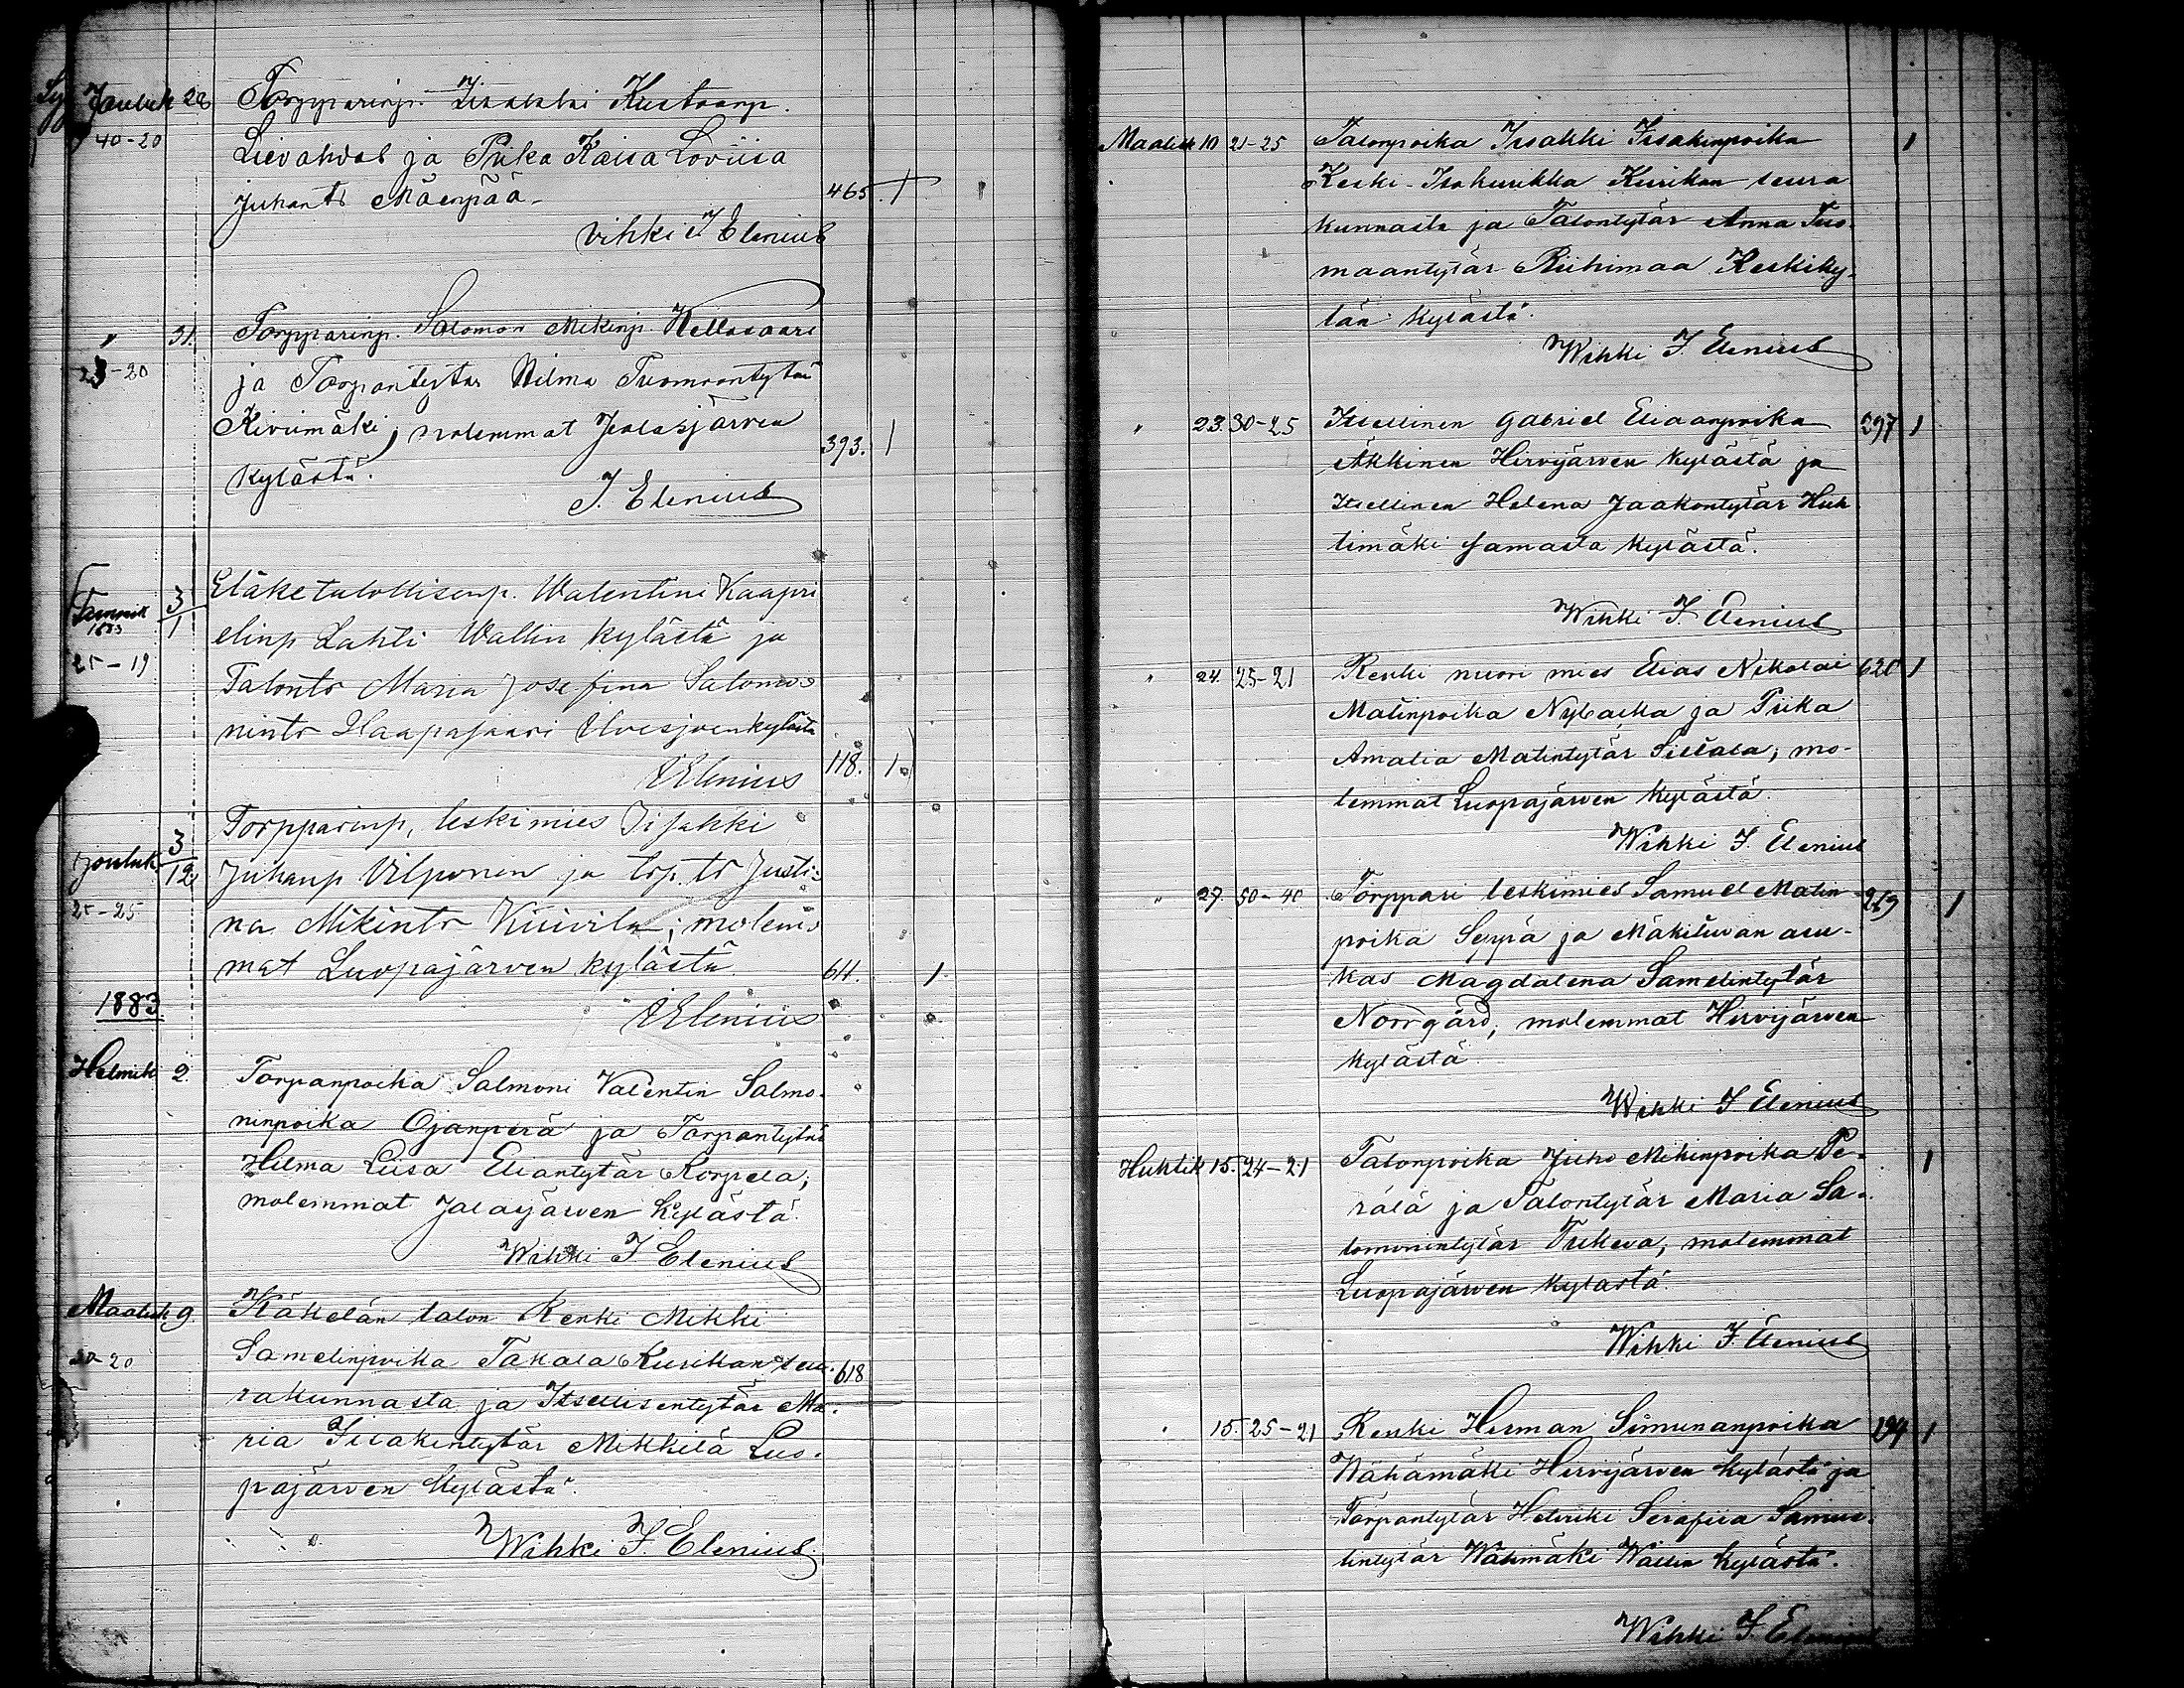 Jouluk 28 Torpparinp. Iisakki Kustaanp.
40-20
Lievahdal ja Piika Kaisa Loviisa
Juhants Mäenpää 465. 1
Vihki J Elenius
" 31. Torpparinp. Salomon Mikinp. Kellosaari
23-20
ja Torpantytär Hilma Tuomaantytär
Kivimäki, molemmat Jalasjärven 393. 1
kylästä.
J. Elenius
Tammik 3/1 Eläketalollisenp. Walentini Kaapri
1883
elinp Lahti Wallin kylästä ja
25-19
Talontr Maria Josefina Salomo=
nintr Haapasaari Ilvesjoen kylästä
118. 1.
J Elenius
Torpparinp, leskimies Iisakki
Jouluk. 3/12 Juhanp Vilponen ja torp.tr Justi=
25-25
na Mikintr Kiivila; molem=
mat Luopajärven kylästä 611. 1.
1883.
J Elenius
Helmik 2. Torpanpoika Salmoni Valentin Salmo-
ninpoika Ojanperä ja Torpantytär
Hilma Liisa Eliantytär Korpela;
molemmat Jalasjärven kylästä.
Wihki J Elenius
Maalisk 9. Käkelän talon Renki Mikki
20-20 Samelinpoika Takala Kurikan seu- 618
rakunnasta ja Itsellisentytär Ma-
ria Iisakintytär Mikkilä Luo-
pajärven kylästä.
Wihki J. Elenius.
Maalisk 10 21-25 Talonpoika Iisakki Iisakinpoika 1
Keski-Isokurikka Kurikan seura
kunnasta ja Talontytär Anna Tuo-
maantytär Riihimaa Keskiky-
län kylästä.
Wihki J. Elenius
" 23. 30-25 Itsellinen Gabriel Eliaanpoika 297 1
Äkkinen Hirvijärven kylästä ja
Itsellinen Helena Jaakontytär Huh
timäki samasta kylästä.
Wihki J. Elenius
" 24. 25-21 Renki nuori mies Elias Nikolai 620 1
Matinpoika Nybacka ja Piika
Amalia Matintytär Sillala, mo-
lemmat Luopajärven kylästä.
Wihki J. Elenius
" 27. 50-40 Torppari leskimies Samuel Matin 269 1
poika Seppä ja Mäkituvan asu-
kas Magdalena Samelintytär
Norrgård, molemmat Hirvijärven
kylästä.
Wihki J Elenius
Huhtik 15. 24-21 Talonpoika Juho Mikinpoika Pe- 1
rälä ja Talontytär Maria Sa-
lomonintytär Tukeva, molemmat
Luopajärven kylästä.
Wihki J. Elenius
" 15. 25-21 Renki Herman Simunanpoika 194 1
Wähämäki Hirvijärven kylästä ja
Torpantytär Heteriki Serafiia Samue-
lintytär Wälimäki Wallin kylästä.
Wihki J. Elenius